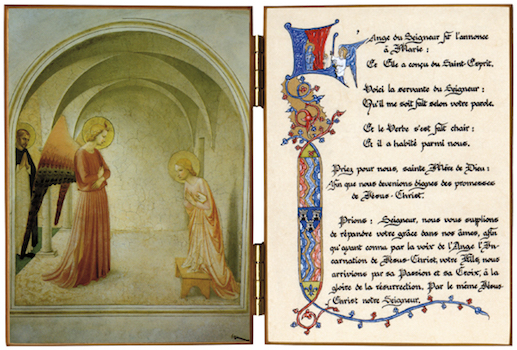 L'Ange du Seigneur fit l'annonce
à Marie :
Et Elle a conçu du Saint-Esprit.
Voici la servante du Seigneur :
Qu'il me soit fait selon votre parole.
Et le Verbe s'est fait chair :
Et il a habité parmi nous.
Priez pour nous, sainte Mère de Dieu :
Afin que nous devenions dignes des promesses
de Jésus-Christ.
Prions : Seigneur, nous vous suplions
de répandre votre grâce dans nos âmes, afin
qu'ayant connu par la voix de l'Ange l'In-
carnation de Jésus-Christ, votre Fils, nous
arrivions par sa Passion et sa Croix, à la
gloire de la résurrection. Par le même Jésus-
Christ notre Seigneur.